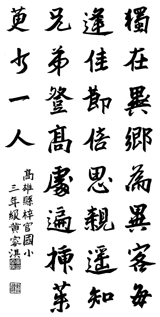 獨在異鄉為異客每
逢佳節倍思親遥知
兄弟登高處遍插茱
萸少一人
高雄縣梓官國小
三年級黃家淇